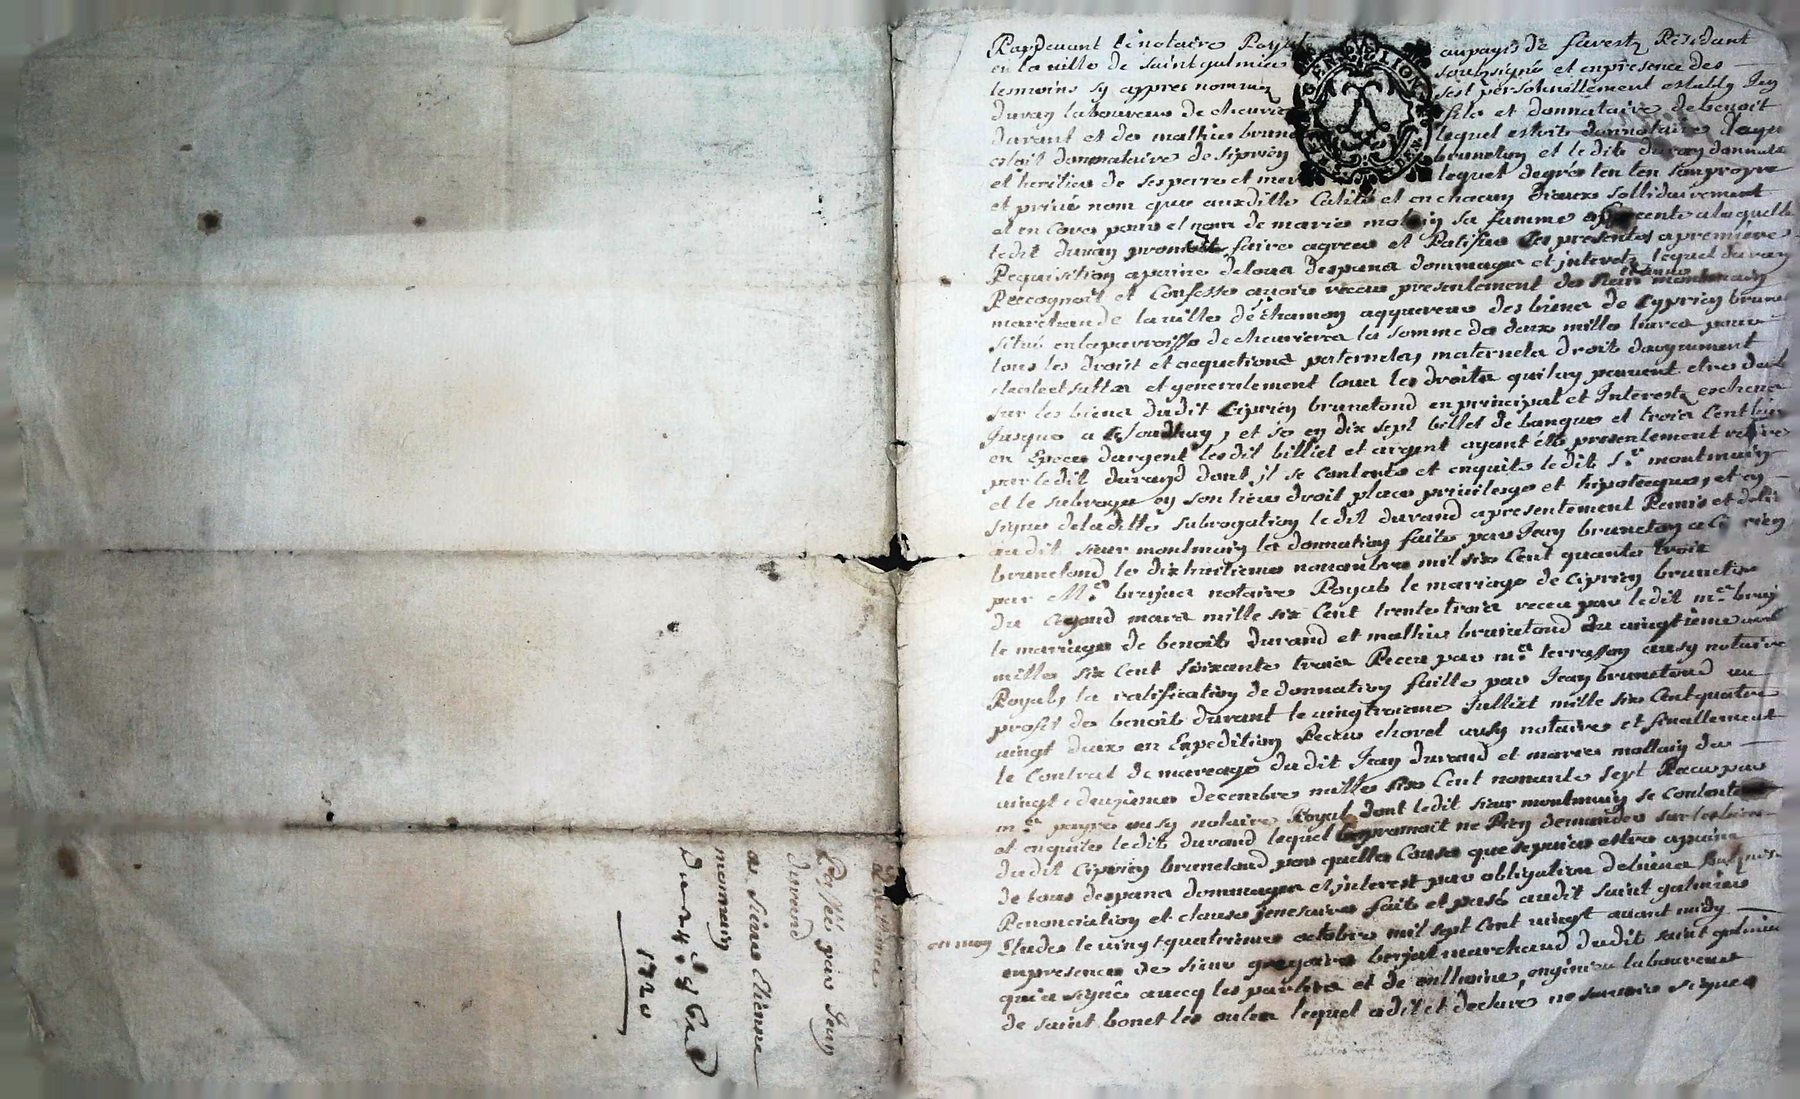 Quittance
Passée par Jean
durand
a sieur Etienne
monmein
Du 24e 8bre
1720
GENE LION
Pardevant le notaire Royal au pays de forestz Residant
en la ville de saint galmier soubsigné et en presence des
tesmoins sy appres nommes sest personnellement estably Jean
duran laboureur de chevrie fils et donnataire de benoit
durant et de mathie brune lequel estoit donnataire
estoit donnataire de siprien bruneton et ledit duran donnata
et heritier de ses perre et mer lequel de gré en son propre
et privé nom que auxditte calité et en chacun dieux sollidairement
et en cores pour et nom de marie molain sa famme absente a laquelle
ledit duran promet faire agreer et Ratifier les presentes a premiere
Requisition a paine de tous despans dommages et interets lequel duran
Recognoit et Confesse avoir receu presentement de sieur etienne montmain
marchand de la ville de chamon acquereur des biens de Cyprien brune
situé en la parroisse de chevrieres la somme de deux mille livres pour
tous les droit et acquetions paternels, maternels droit daugmant
et generalement tous les droits quil luy peuvent etre deub
sur les biens dudit Ciprien brunetond en principal et Interests escheus
Jusques a Ce Jourdhuy, et so en dix sept billet de banque et trois Cent livres
en Espece dargent lesdit billiet et argent ayant été presentement retires
par ledit durand dont il se contente et enquite ledit Sr montmain
et le subroge en son lieu droit place privilesge et hipotecque, et en
signe de laditte subrogation ledit durand a presentement Remis et delivré
audit sieur montmain la donnation faite par Jean bruneton a Ciprien
brunetond le dixhuitieme novembre mil six Cent quarante trois
par Me brujas notaire Royal le mariage de Ciprien bruneton
du segond mars mille six Cent trente trois receu par ledit me bruj
le mariage de benoit durand et mathie brunetond du vingtieme avril
mille six cent soixante trois Receu par me terrasson ausy notaire
Royal, la ratification de donnation faitte par Jean brunetond au
profit de benoit durant le vingtroisieme Julliet mille six Cent quatre
vingt deux en Expedition Receue chovel ausy notaire et finallement
le Contrat de mareage dudit Jean durand et marie mollain du
vingt deuzieme decembre mille six Cent nonante sept Receu par
me payre ausy notaire Royal dont ledit sieur montmain se contente
et enquites ledit durand lequel promait ne Rien demander sur les biens
dudit Ciprien brunetond par quelle Cause que se puisse estre a paine
de tous despans dommages et interest par obligation de biens
Renonciation et clause fait et passé audit saint galmier
en mon Etudes le vingt quatrieme octobre mil sept Cent vingt avant midy
en presence de sieur gregoire berjat marchand dudit saint galmier
qui a signé avecq les parties et de enthoine, laboureur
de saint bonet les oules lequel a dit et declare ne savoir signer